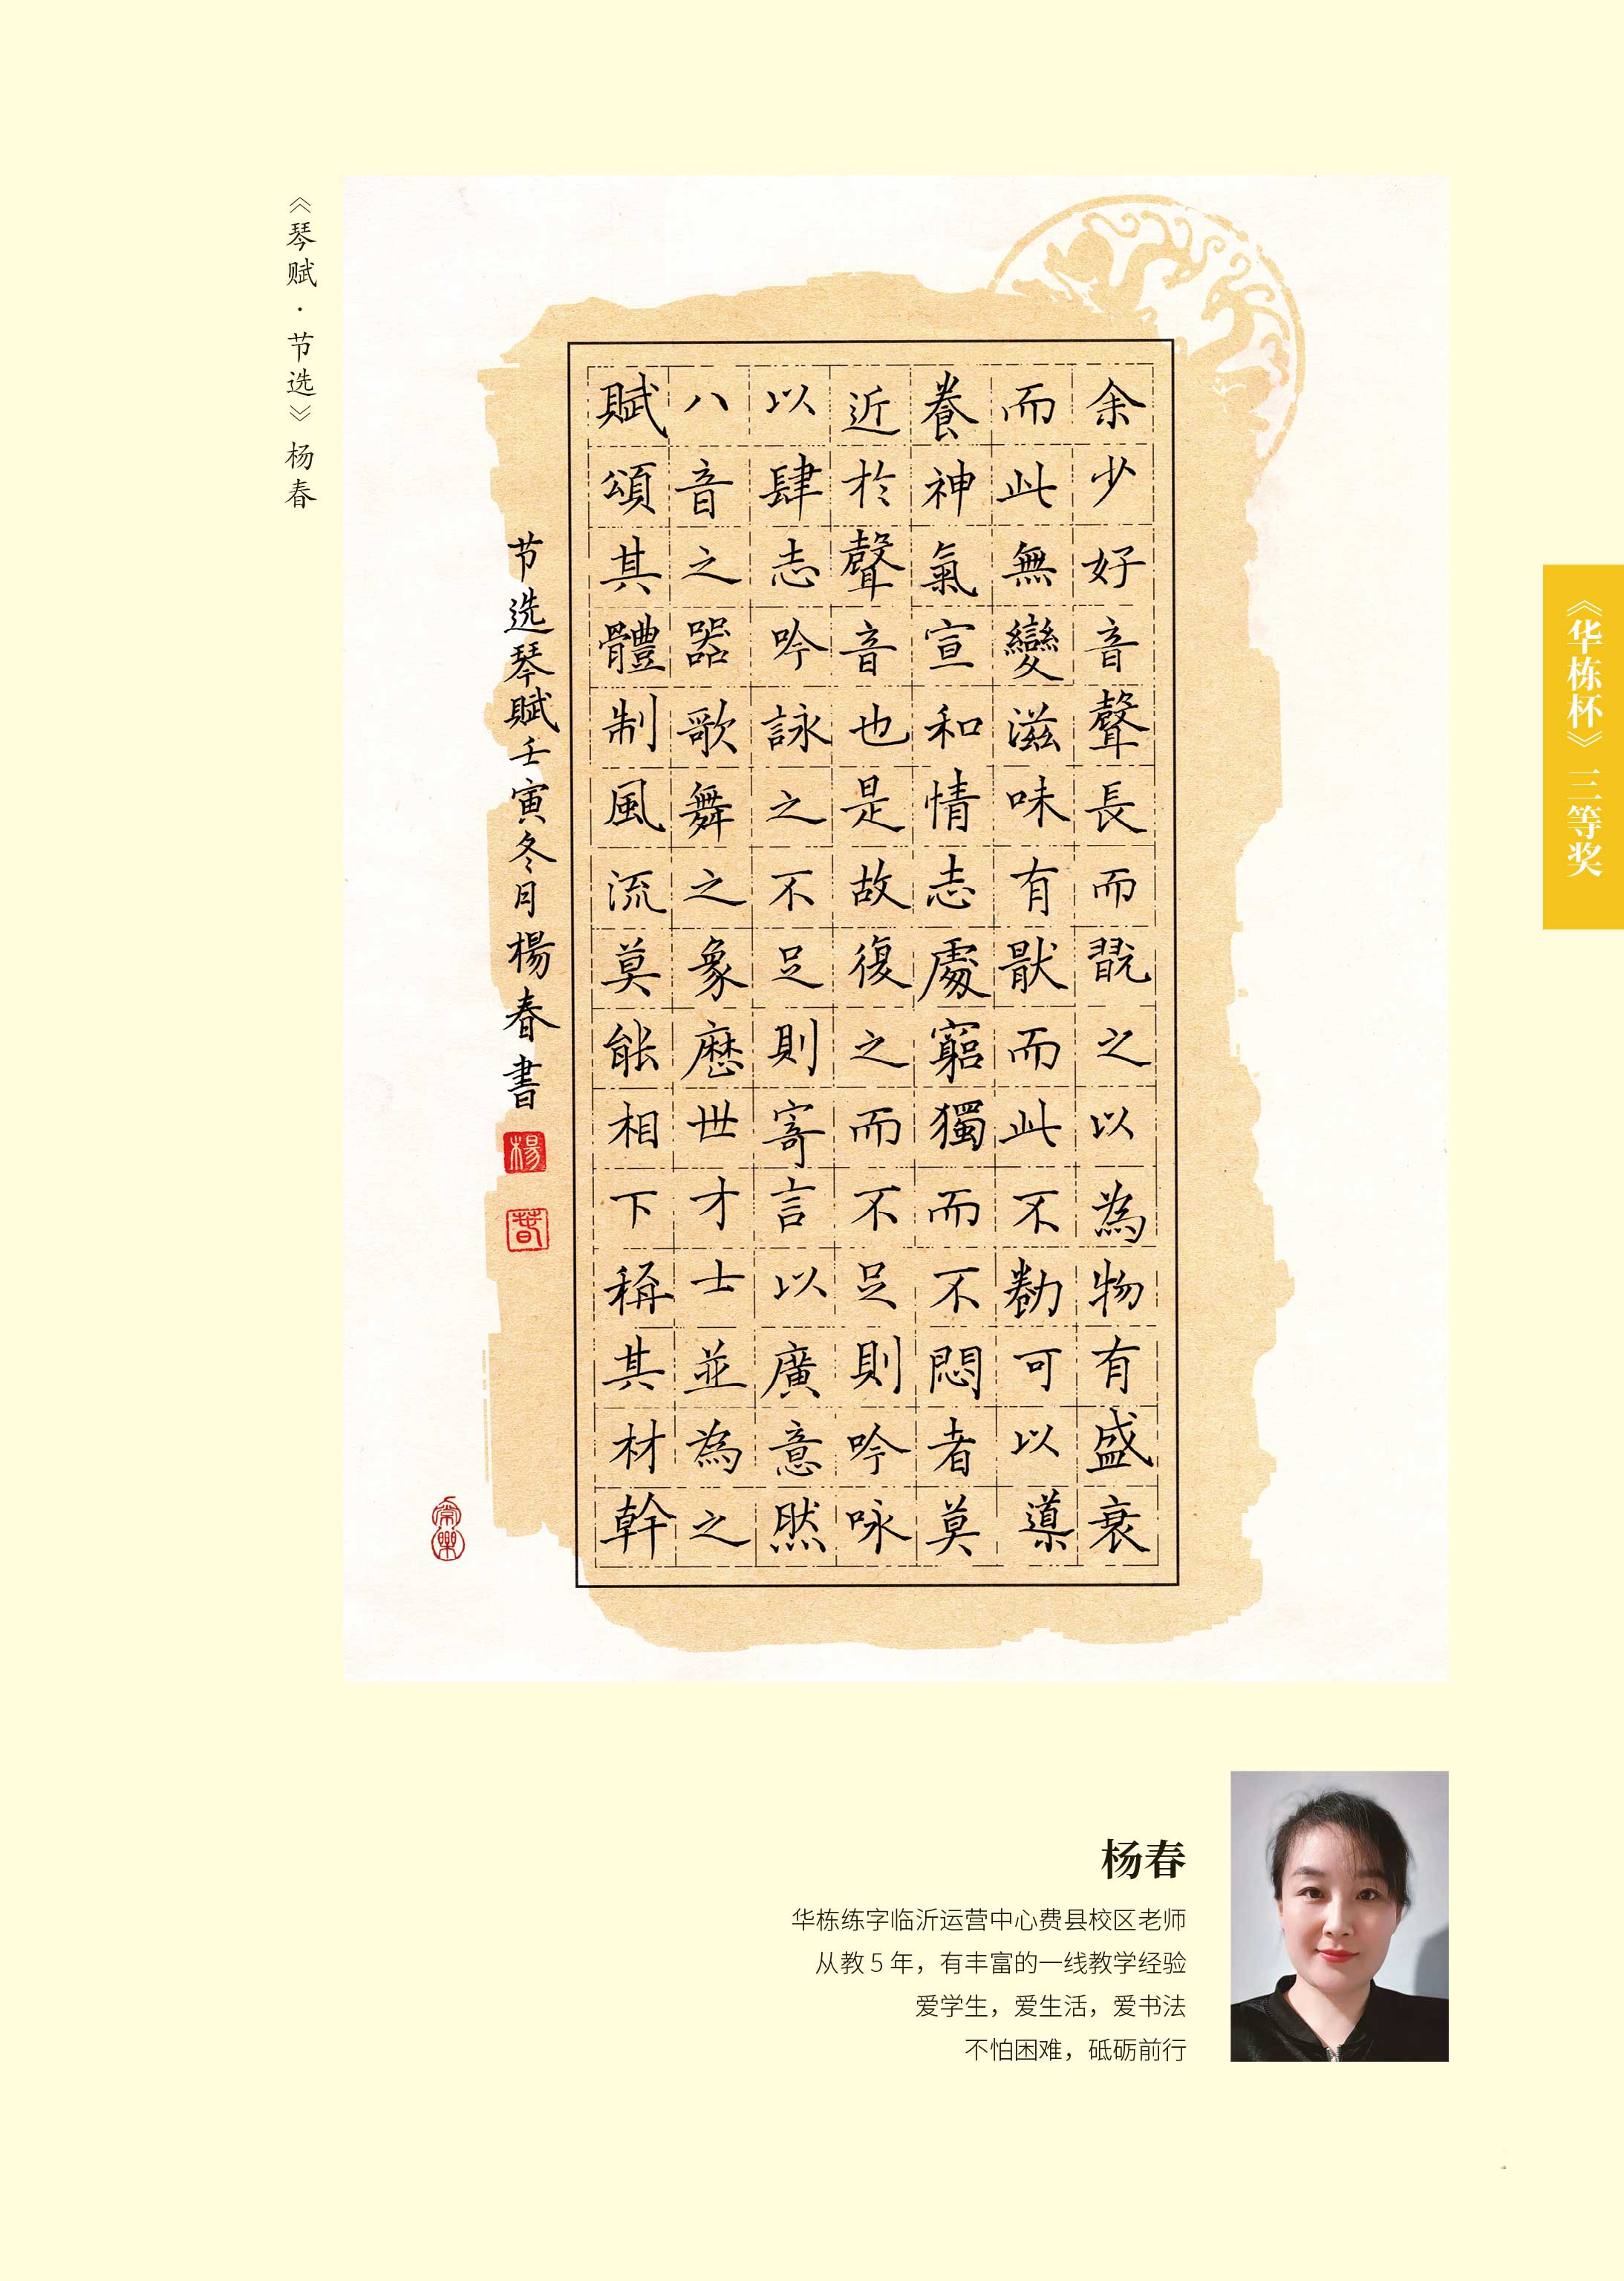 《华栋杯》三等奖
《琴赋·节选》杨春
余少好音聲長而翫之以為物有盛衰
而此無變滋味有猒而此不勌可以導
養神氣宣和情志處窮獨而不悶者莫
近於聲音也是故復之而不足則吟咏
以肆志吟詠之不足則寄言以廣意然
八音之器歌舞之象歷世才士並為之
賦頌其體制風流莫能相下稱其材幹
节选琴赋壬寅冬月楊春書
楊
春
杨春
华栋练字临沂运营中心费县校区老师
从教 5 年，有丰富的一线教学经验
爱学生，爱生活，爱书法
不怕困难，砥砺前行